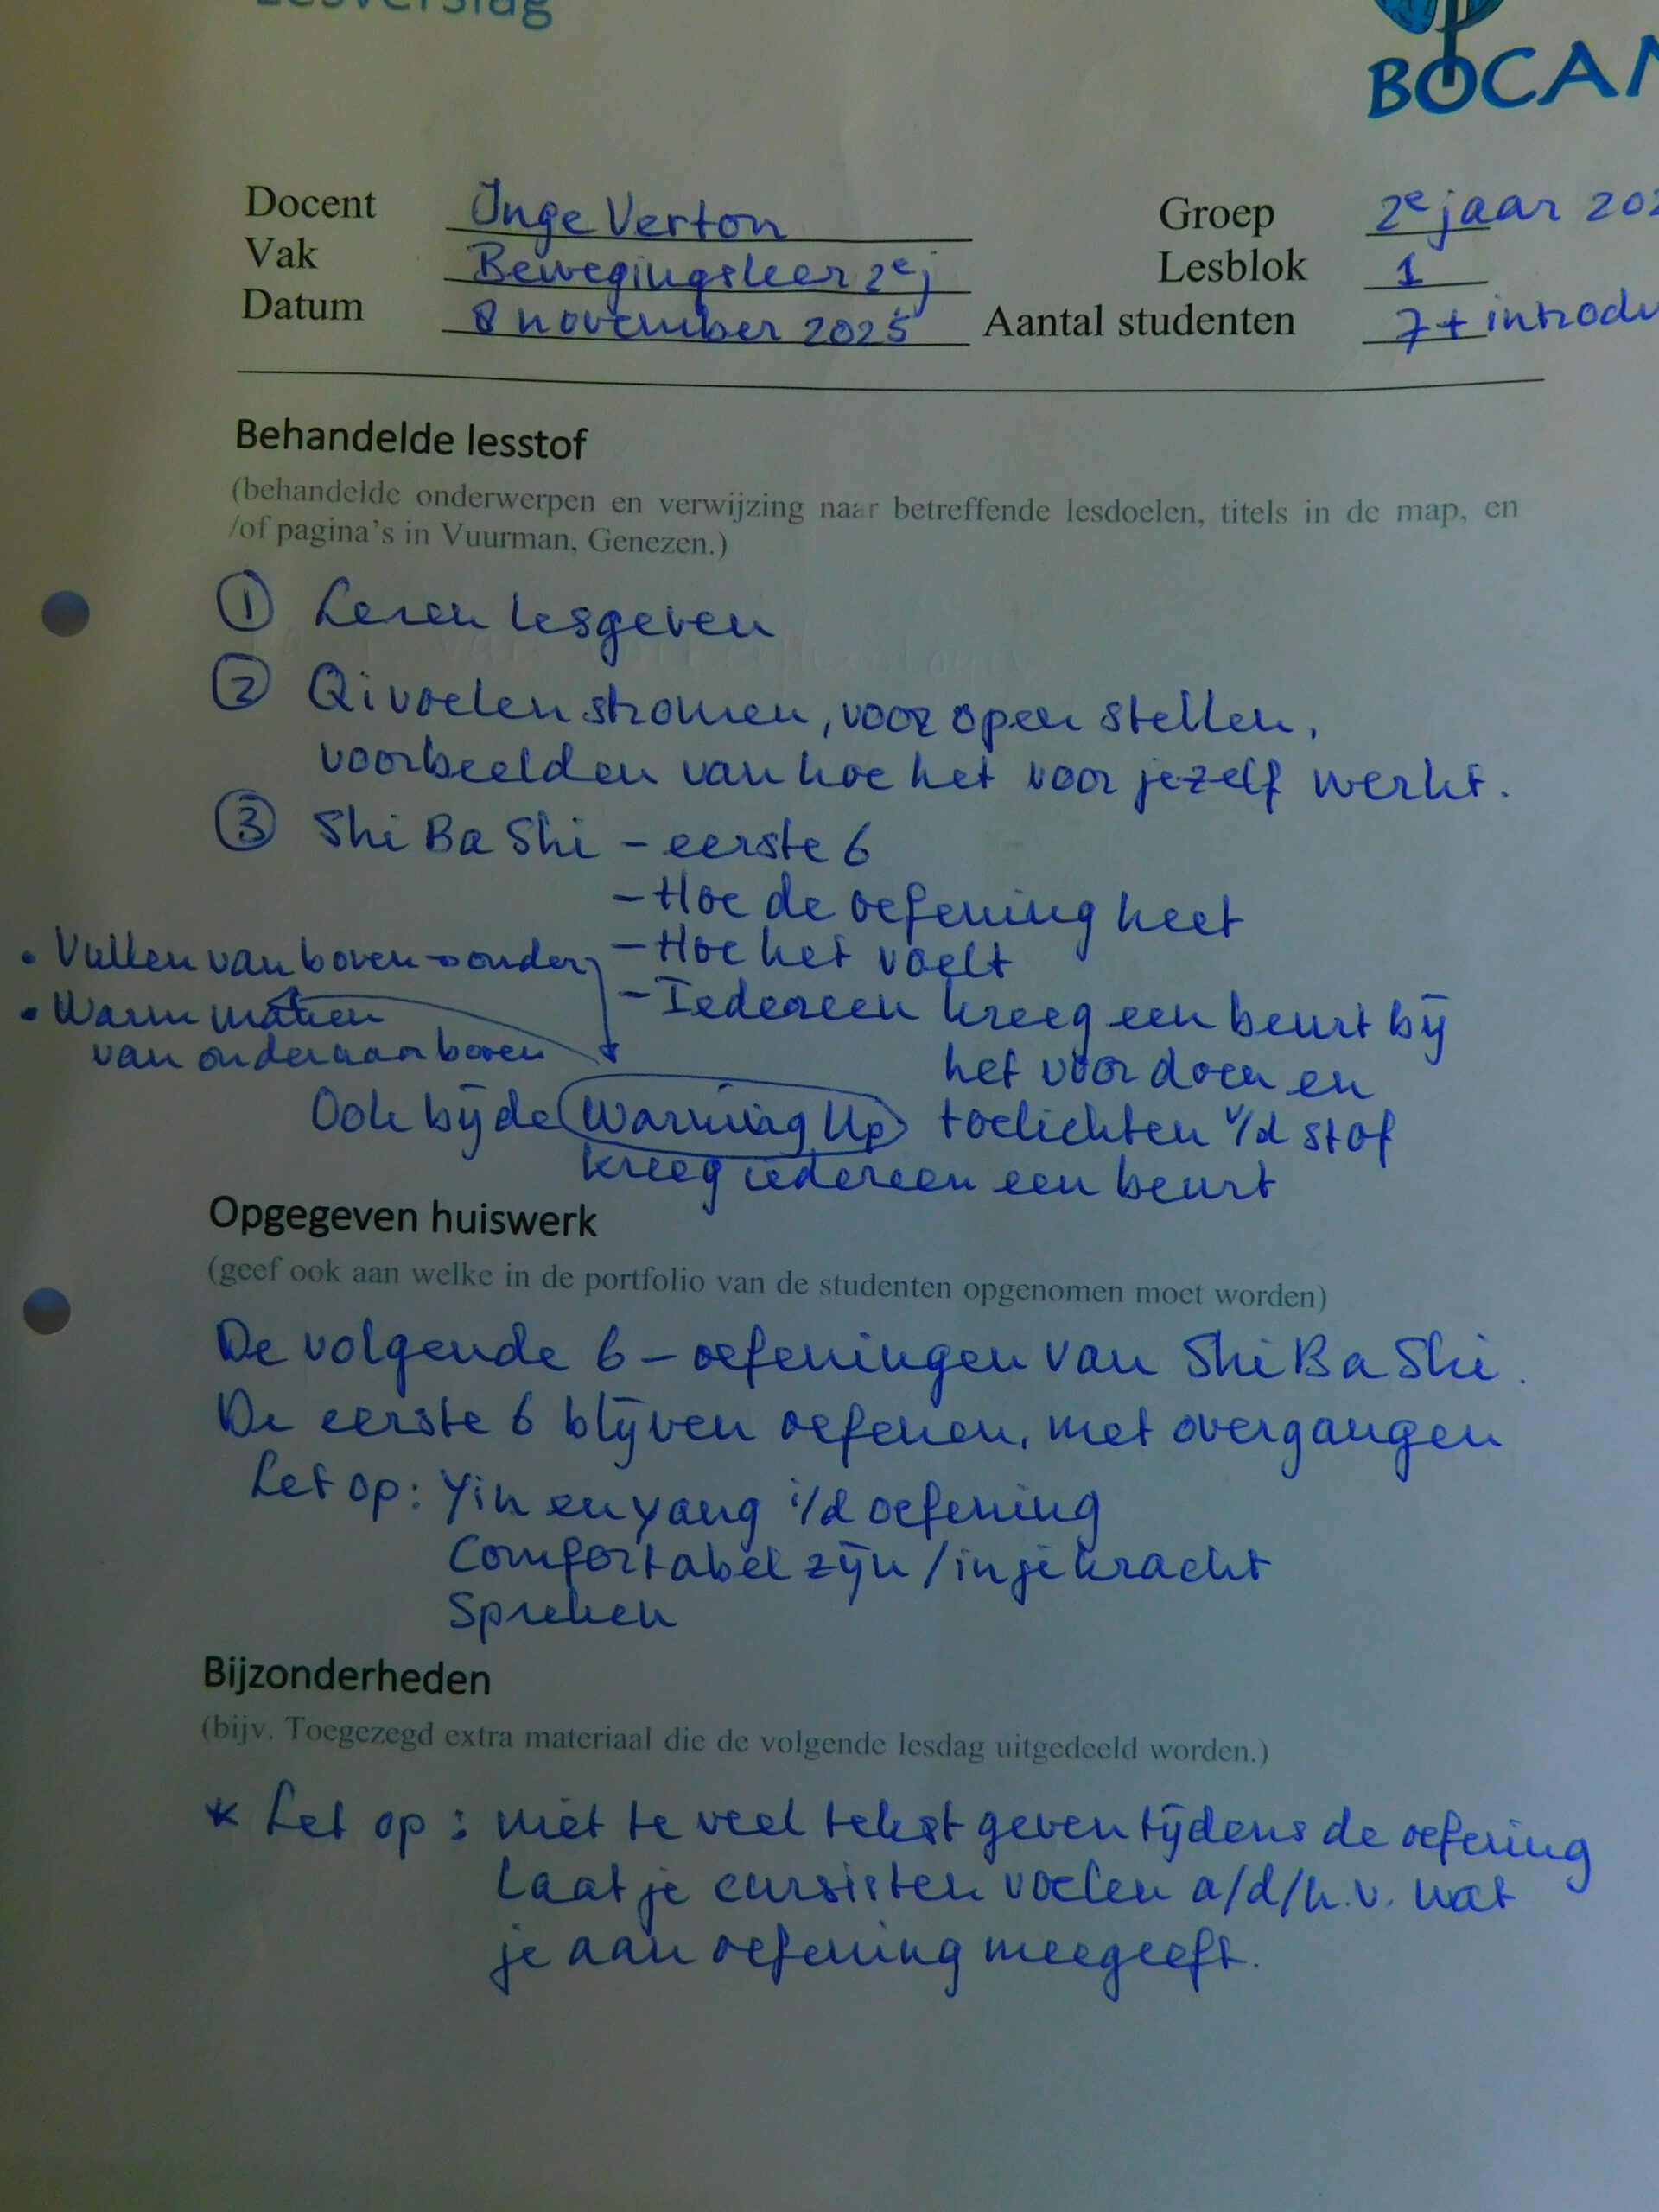 Lesverslag
BOCAM
Docent Inge Verton Groep 2e jaar 202
Vak Bewegingsleer 2e j Lesblok 1
Datum 8 november 2025 Aantal studenten 7 + introdu
Behandelde lesstof
(behandelde onderwerpen en verwijzing naar betreffende lesdoelen, titels in de map, en
/of pagina's in Vuurman, Genezen.)
① Leren lesgeven
② Qi voelen stromen, voor open stellen,
voorbeelden van hoe het voor jezelf werkt.
③ Shi Ba Shi - eerste 6
- Hoe de oefening heet
- Hoe het voelt
- Iedereen kreeg een beurt bij
het voordoen en
toelichten v/d stof
• Vullen van boven → onder
• Warm maken
van onder naar boven
Ook bij de Warming Up
kreeg iedereen een beurt
Opgegeven huiswerk
(geef ook aan welke in de portfolio van de studenten opgenomen moet worden)
De volgende 6 - oefeningen van Shi Ba Shi.
De eerste 6 blijven oefenen, met overgangen
Let op: Yin en yang i/d oefening
Comfortabel zijn / in je kracht
Spreken
Bijzonderheden
(bijv. Toegezegd extra materiaal die de volgende lesdag uitgedeeld worden.)
* Let op : niet te veel tekst geven tijdens de oefening
Laat je cursisten voelen a/d/h.v. wat
je aan oefening meegeeft.